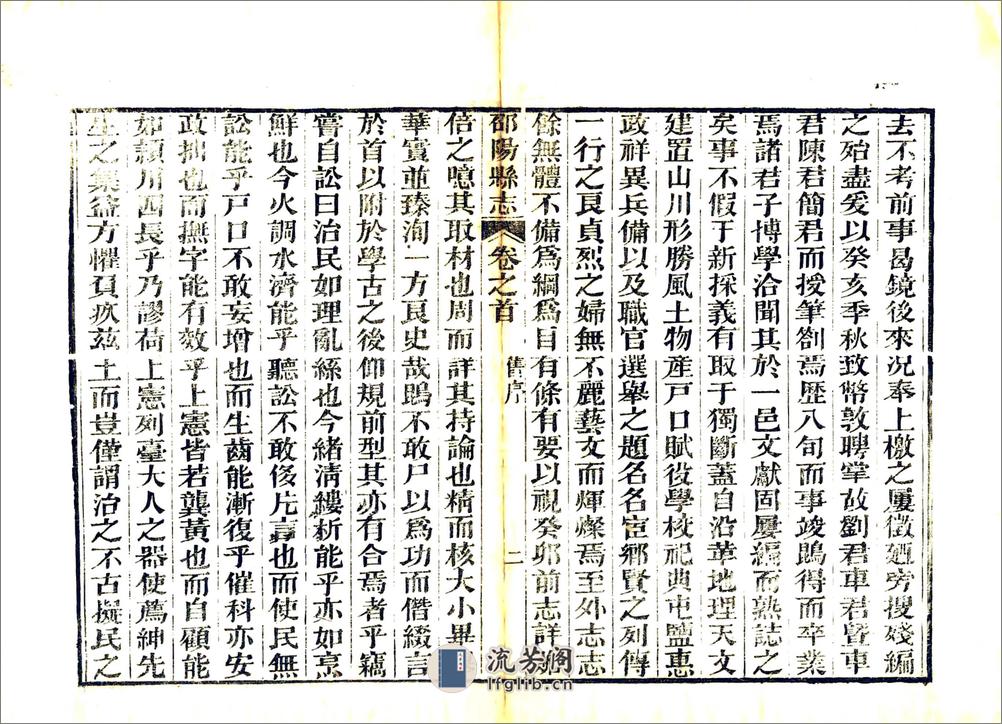 去不考前事曷鏡後來況奉上檄之屢徵廼旁搜殘編
之殆盡爰以癸亥季秋致幣敦聘掌故劉君車君暨車
君陳君簡君而授筆劄焉歷八旬而事竣鵾得而卒業
焉諸君子博學洽聞其於一邑文獻固屢編而熟誌之
矣事不假于新採義有取于獨斷蓋自沿革地理天文
建置山川形勝風土物産戸口賦役學校祀典屯鹽惠
政祥異兵備以及職官選舉之題名名宦鄉賢之列傳
一行之良貞烈之婦無不麗藝文而輝燦焉至外志志
餘無體不備爲綱爲目有條有要以視癸卯前志詳
邵陽縣志 卷之首 舊序 二
倍之噫其取材也周而詳其持論也精而核大小畢
華實並臻洵一方良史哉鵾不敢尸以爲功而僭綴言
於首以附於學古之後仰規前型其亦有合焉者乎竊
嘗自訟曰治民如理亂絲也今緒淸縷析能乎亦如烹
鮮也今火調水濟能乎聽訟不敢後片言也而使民無
訟能乎戸口不敢妄增也而生齒能漸復乎催科亦安
政拙也而撫字能有效乎上憲皆若龔黃也而自顧能
如潁川四長乎乃謬荷上憲列臺大人之器使薦紳先
生之集益方懼負疚兹土而豈僅謂治之不古擬民之
流芳阁
lfglib.cn